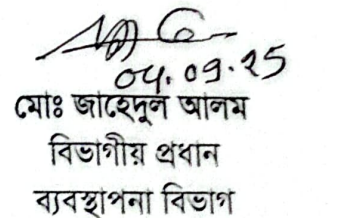 04.09.25
মোঃ জাহেদুল আলম
বিভাগীয় প্রধান
ব্যবস্থাপনা বিভাগ